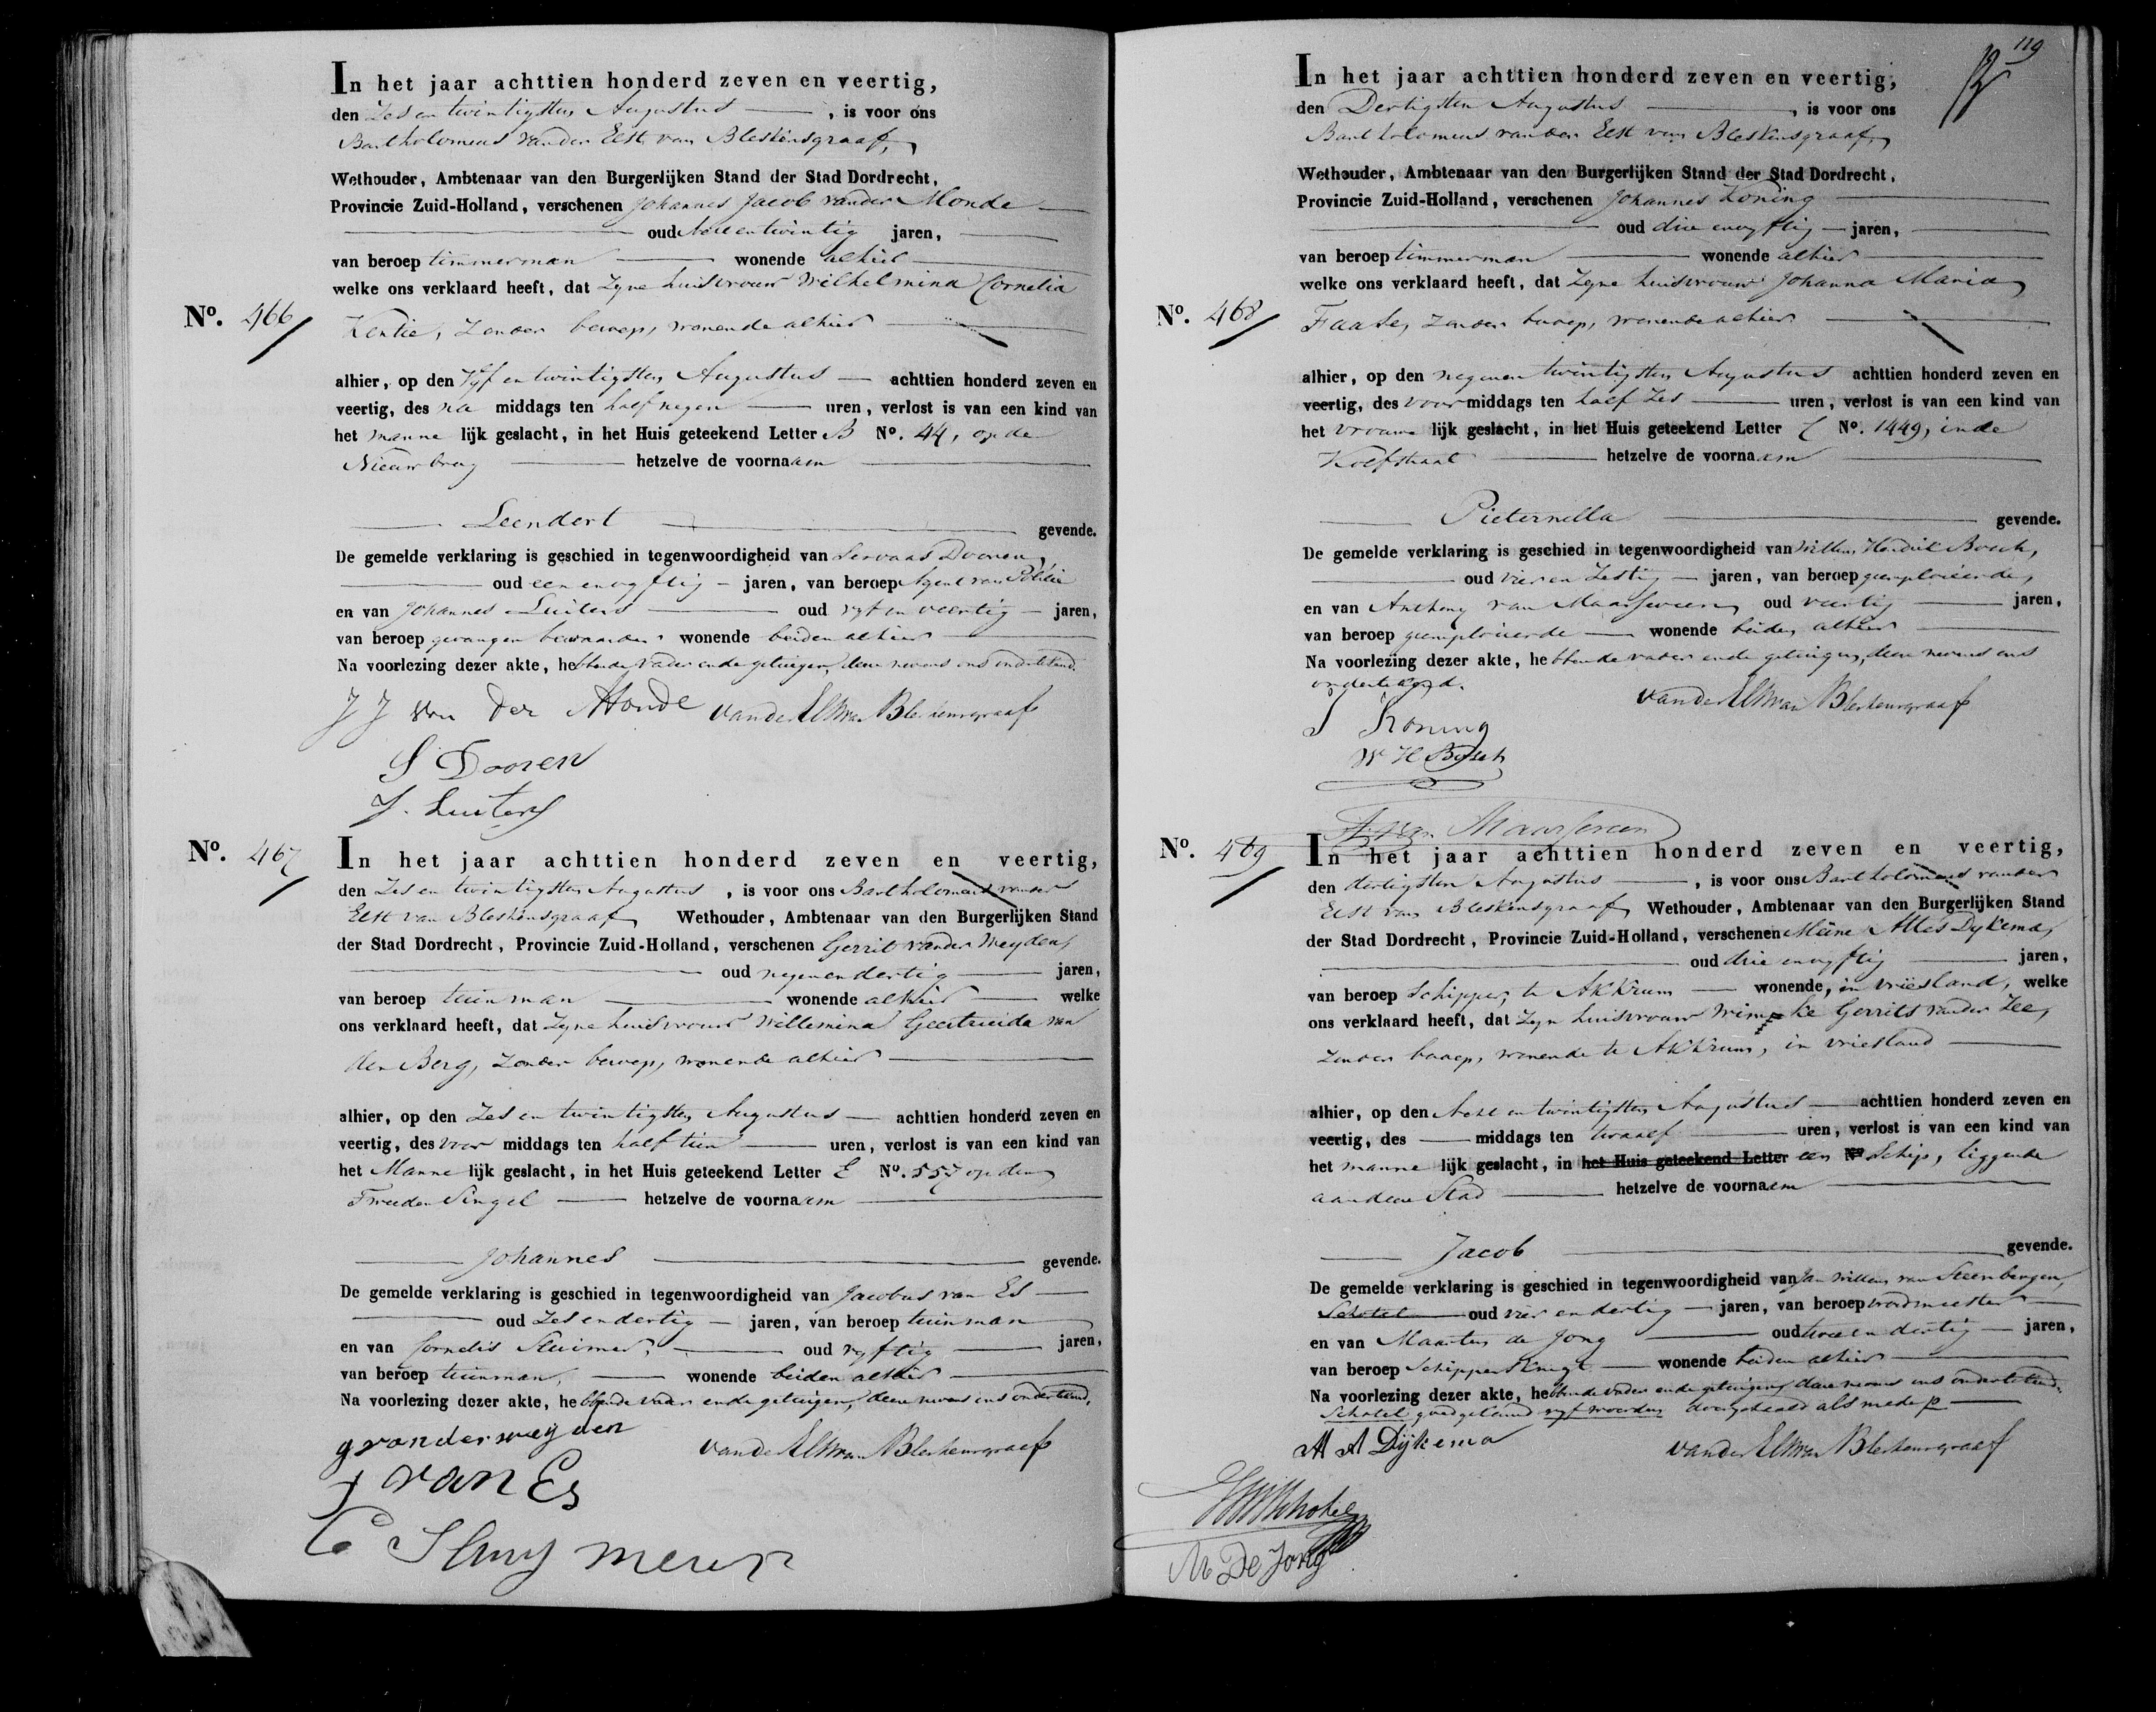 In het jaar achttien honderd zeven en veertig,
den Zes en twintigsten Augustus , is voor ons
Bartholomeus vander Elst van Bleskensgraaf,
Wethouder, Ambtenaar van den Burgerlijken Stand der Stad Dordrecht,
Provincie Zuid-Holland, verschenen Johannes Jacob vander Monde
oud acht en twintig jaren,
van beroep timmerman wonende alhier
welke ons verklaard heeft, dat Zyne huisvrouw Wilhelmina Cornelia
No. 466
Kentie, Zonder beroep, wonende alhier
alhier, op den Vyf en twintigsten Augustus achttien honderd zeven en
veertig, des na middags ten half negen uren, verlost is van een kind van
het manne lijk geslacht, in het Huis geteekend Letter B No. 44, op de
Nieuwbrug hetzelve de voornaam
Leendert gevende.
De gemelde verklaring is geschied in tegenwoordigheid van Servaas Dooren
oud een en vyftig jaren, van beroep Agent van Politie
en van Johannes Luiters oud vyf en veertig jaren,
van beroep gevangen bewaarder wonende beiden alhier
Na voorlezing dezer akte, hebbende vader en de getuigen, deze nevens ons onderteekend.
J J van der Monde vander Elst van Bleskensgraaf
S Dooren
J. Luiters
No. 467
In het jaar achttien honderd zeven en veertig,
den Zes en twintigsten Augustus , is voor ons Bartholomeus vander
Elst van Bleskensgraaf, Wethouder, Ambtenaar van den Burgerlijken Stand
der Stad Dordrecht, Provincie Zuid-Holland, verschenen Gerrit vander Weyden,
oud negenendertig jaren,
van beroep tuinman wonende alhier welke
ons verklaard heeft, dat Zyne huisvrouw Willemina Geertruida van
den Berg, Zonder beroep, wonende alhier
alhier, op den Zes en twintigsten Augustus achttien honderd zeven en
veertig, des voor middags ten half tien uren, verlost is van een kind van
het Manne lijk geslacht, in het Huis geteekend Letter E No. 557 op den
Tweeden Singel hetzelve de voornaam
Johannes gevende.
De gemelde verklaring is geschied in tegenwoordigheid van Jacobus van Es
oud Zes en dertig jaren, van beroep tuinman
en van Cornelis Sluimer, oud vyftig jaren,
van beroep tuinman, wonende beiden alhier
Na voorlezing dezer akte, hebbende vader en de getuigen, deze nevens ons onderteekend,
g vander weyden vander Elst van Bleskensgraaf
J van Es
C Sluymer
119
In het jaar achttien honderd zeven en veertig,
den Dertigsten Augustus , is voor ons
Bartholomeus vander Elst van Bleskensgraaf,
Wethouder, Ambtenaar van den Burgerlijken Stand der Stad Dordrecht,
Provincie Zuid-Holland, verschenen Johannes Koning
oud drie en vyftig jaren,
van beroep timmerman wonende alhier
welke ons verklaard heeft, dat Zyne huisvrouw Johanna Maria
No. 468
Faase, Zonder beroep, wonende alhier
alhier, op den negenen twintigsten Augustus achttien honderd zeven en
veertig, des voor middags ten half Zes uren, verlost is van een kind van
het vrouwe lijk geslacht, in het Huis geteekend Letter C No. 1449, in de
Kolfstraat hetzelve de voornaam
Pieternella gevende.
De gemelde verklaring is geschied in tegenwoordigheid van Willem Hendrik Bosch,
oud vier en Zestig jaren, van beroep geemploieerde,
en van Anthony van Maarseveen, oud veertig jaren,
van beroep geemploieerde wonende beiden alhier
Na voorlezing dezer akte, hebbende vader en de getuigen, deze nevens ons
onderteekend.
J Koning vander Elst van Bleskensgraaf
W H Bosch
A. van Maarseveen
No. 469
In het jaar achttien honderd zeven en veertig,
den dertigsten Augustus , is voor ons Bartholomeus vander
Elst van Bleskensgraaf, Wethouder, Ambtenaar van den Burgerlijken Stand
der Stad Dordrecht, Provincie Zuid-Holland, verschenen Meine Attes Dykema,
oud drie en vyftig jaren,
van beroep Schipper, te Akkrum wonende, in Vriesland, welke
ons verklaard heeft, dat Zyn huisvrouw Wimpke Gerrits vander Zee,
Zonder beroep, wonende te Akkrum, in Vriesland
alhier, op den Acht en twintigsten Augustus achttien honderd zeven en
veertig, des middags ten twaalf uren, verlost is van een kind van
het manne lijk geslacht, in het Huis geteekend Letter een No Schip, liggende
aan deze Stad hetzelve de voornaam
Jacob gevende.
De gemelde verklaring is geschied in tegenwoordigheid van Jan Willem van Steenbergen,
Schotel oud vier en dertig jaren, van beroep
en van Maarten de Jong oud twee en dertig jaren,
van beroep Schippersknegt wonende beiden alhier
Na voorlezing dezer akte, hebbende vader en de getuigen deze nevens ons onderteekend.
Schotel goedgekeurd vyf woorden doorgehaald als mede p
M A Dijkema vander Elst van Bleskensgraaf
Schotel
M De Jong